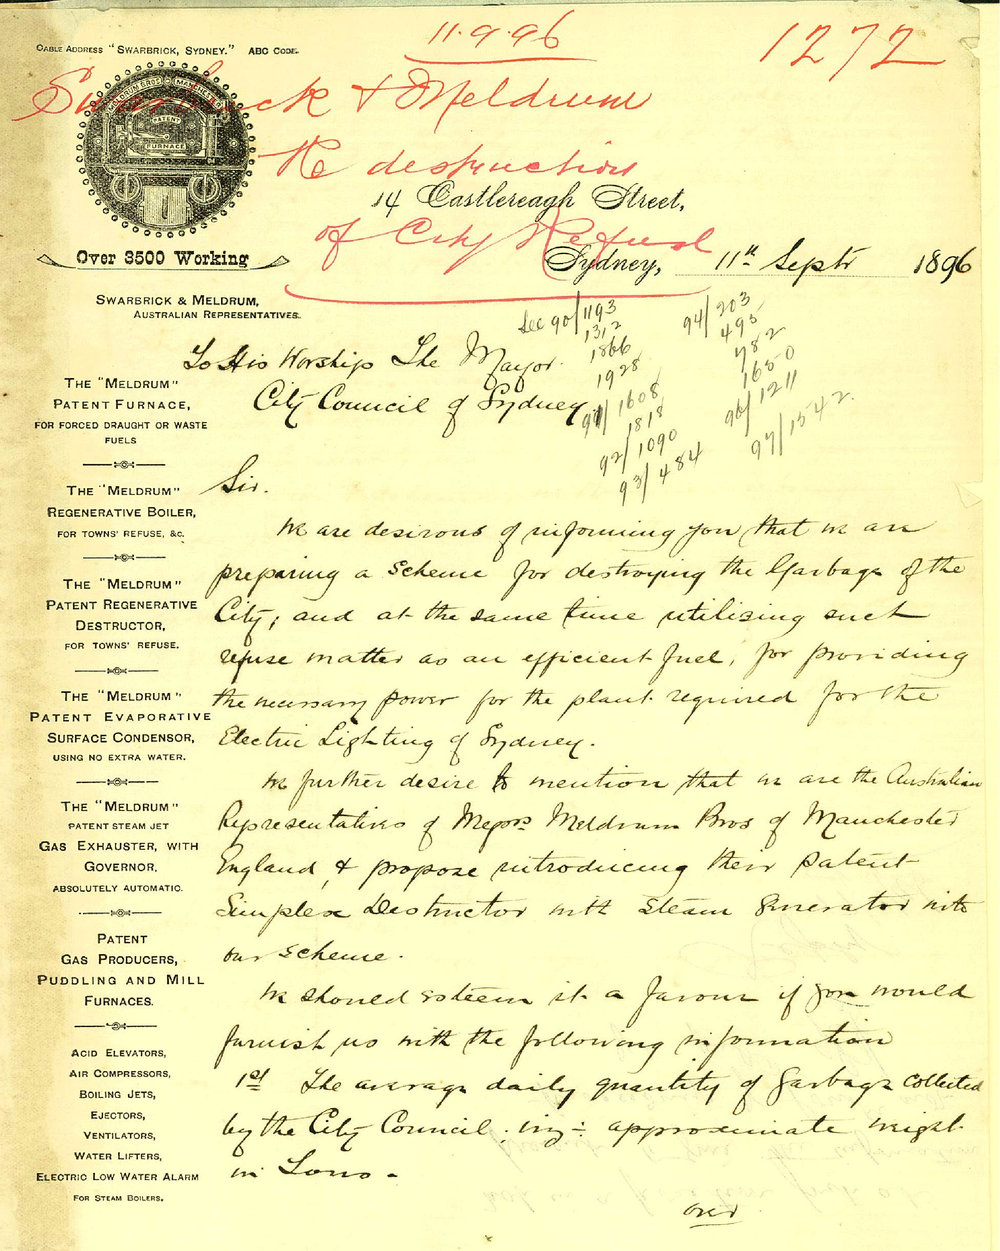 11.9.96
1272
Cable Address "Swarbrick, Sydney." ABC Code.
Swarbrick & Meldrum
Re destruction
of City Refuse
MELDRUM BROS MANCHESTER
PATENT
FURNACE
Over 3500 Working
14 Castlereagh Street,
Sydney, 11th Septr 1896
Swarbrick & Meldrum,
Australian Representatives.
See 90/1193
1312
1866
1928
91/1608
1818
92/1090
93/484
94/203
495
782
1650
96/1211
97/1542.
The "Meldrum"
Patent Furnace,
for forced draught or waste
fuels
The "Meldrum"
Regenerative Boiler,
for towns' refuse, &c.
The "Meldrum"
Patent Regenerative
Destructor,
for towns' refuse.
The "Meldrum"
Patent Evaporative
Surface Condensor,
using no extra water.
The "Meldrum"
patent steam jet
Gas Exhauster, with
Governor,
absolutely automatic.
Patent
Gas Producers,
Puddling and Mill
Furnaces.
Acid Elevators,
Air Compressors,
Boiling Jets,
Ejectors,
Ventilators,
Water Lifters,
Electric Low Water Alarm
For Steam Boilers.
To His Worship The Mayor.
City Council of Sydney
Sir.
We are desirous of informing you that we are
preparing a scheme for destroying the Garbage of the
City; and at the same time utilising such
refuse matter as an efficient fuel, for providing
the necessary power for the plant required for the
Electric Lighting of Sydney.
We further desire to mention that we are the Australian
Representatives of Messrs Meldrum Bros of Manchester
England, & propose introducing their patent
Simplex Destructor with steam generator with
our scheme.
We should esteem it a favour if you would
furnish us with the following information
1st The average daily quantity of garbage collected
by the City Council, viz:- approximate weight
in Tons-
over